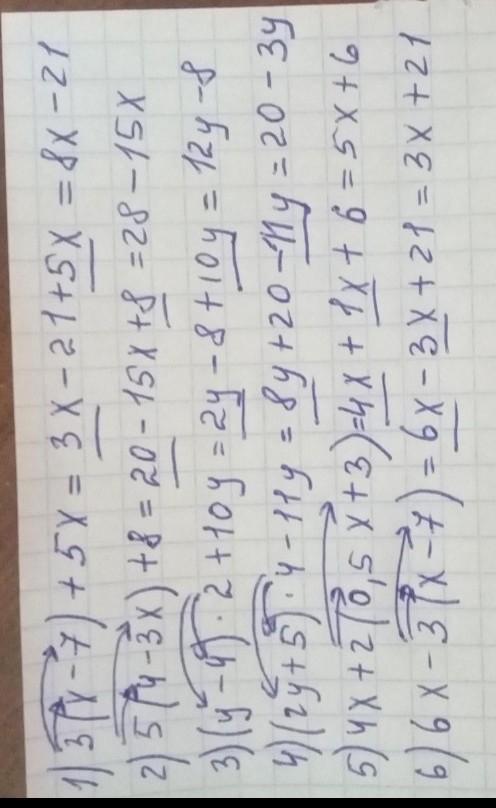 1) 3(x-7)+5x = 3x-21+5x = 8x-21
2) 5(4-3x)+8 = 20-15x+8 = 28-15x
3) (y-4)·2+10y = 2y-8+10y = 12y-8
4) (2y+5)·4-11y = 8y+20-11y = 20-3y
5) 4x+2(0,5x+3)=4x+1x+6=5x+6
6) 6x-3(x-7)=6x-3x+21=3x+21